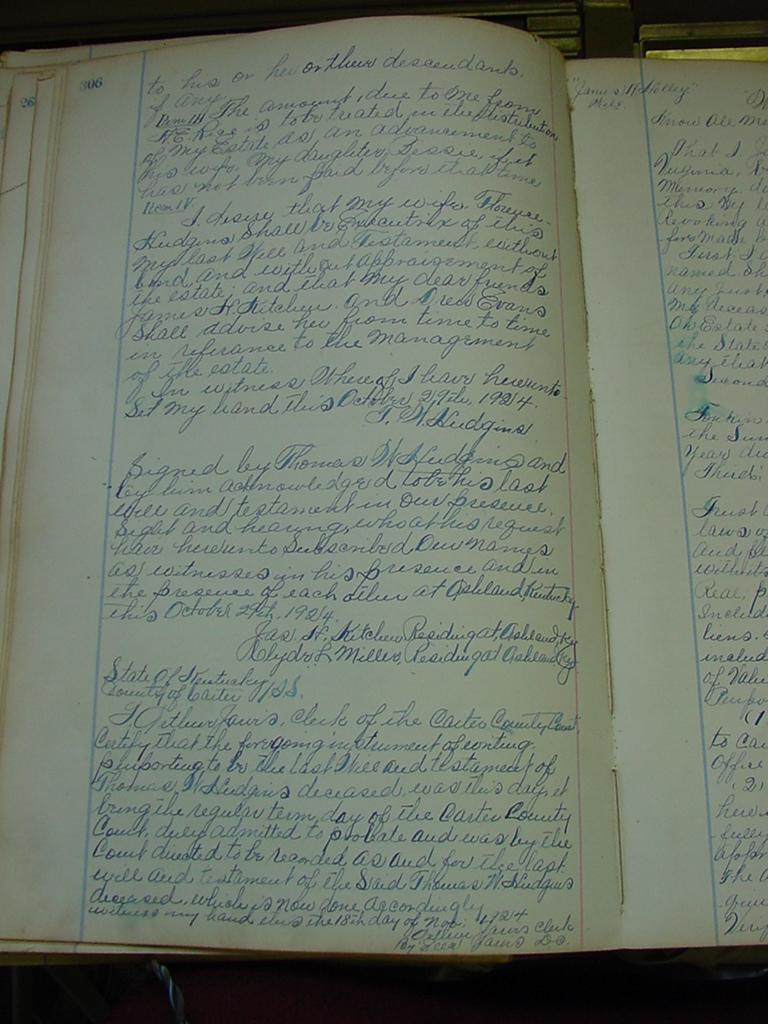 306
to his or her or their descendants,
if any.
Item III The amount, due to me from
H.E. Rice is to be treated in the distribution
of My Estate as an advancement to
his wife, My daughter, Bessie, if it
has not been paid before that time
Item IV
I desire that my wife, Florence
Hudgins shall be Executrix of this
my last Will and Testament, without
bond and without appraisement of
the estate; and that my dear friends
James H. Kitchen and Drew Evans
shall advise her from time to time
in referance to the management
of the estate.
In witness Where of, I have hereunto
Set my hand this October 29th, 1924.
T. W. Hudgins
Signed by Thomas W. Hudgins and
by him acknowledged to be his last
will and testament in our presence,
Sight and hearing, who at his request
have hereunto Subscribed Our names
as witnesses in his presence and in
the presence of each other at Ashland, Kentucky
this October 29th, 1924.
Jas. H. Kitchen, Residing at Ashland, Ky
Clyde L. Miller, Residing at Ashland, Ky
State of Kentucky
County of Carter SS.
I, Arthur Jarvis, Clerk of the Carter County Court,
Certify that the foregoing instrument of writing,
purporting to be the last Will and testament of
Thomas W. Hudgins deceased was this day, it
being the regular term day of the Carter County
Court, duly admitted to probate and was by the
Court directed to be recorded as and for the last
will and testament of the Said Thomas W. Hudgins
deceased, which is now done accordingly
witness my hand this the 18th day of Nov. 1924
Arthur Jarvis Clerk
By Jarvis D.C.
26
"James H Holley"
Will
Know all me
That I, J
Virginia,
Memory, d
this my l
Revoking a
fore made b
First: I
named sh
any just
my deceas
Of Estate
the State
any that
Second
the Sum
Year
Third:
Trust
laws o
and be
without
Real, p
Includ
liens,
includ
of Valu
Purpo
(1
to car
Office
(2)
here
fully
appr
The a